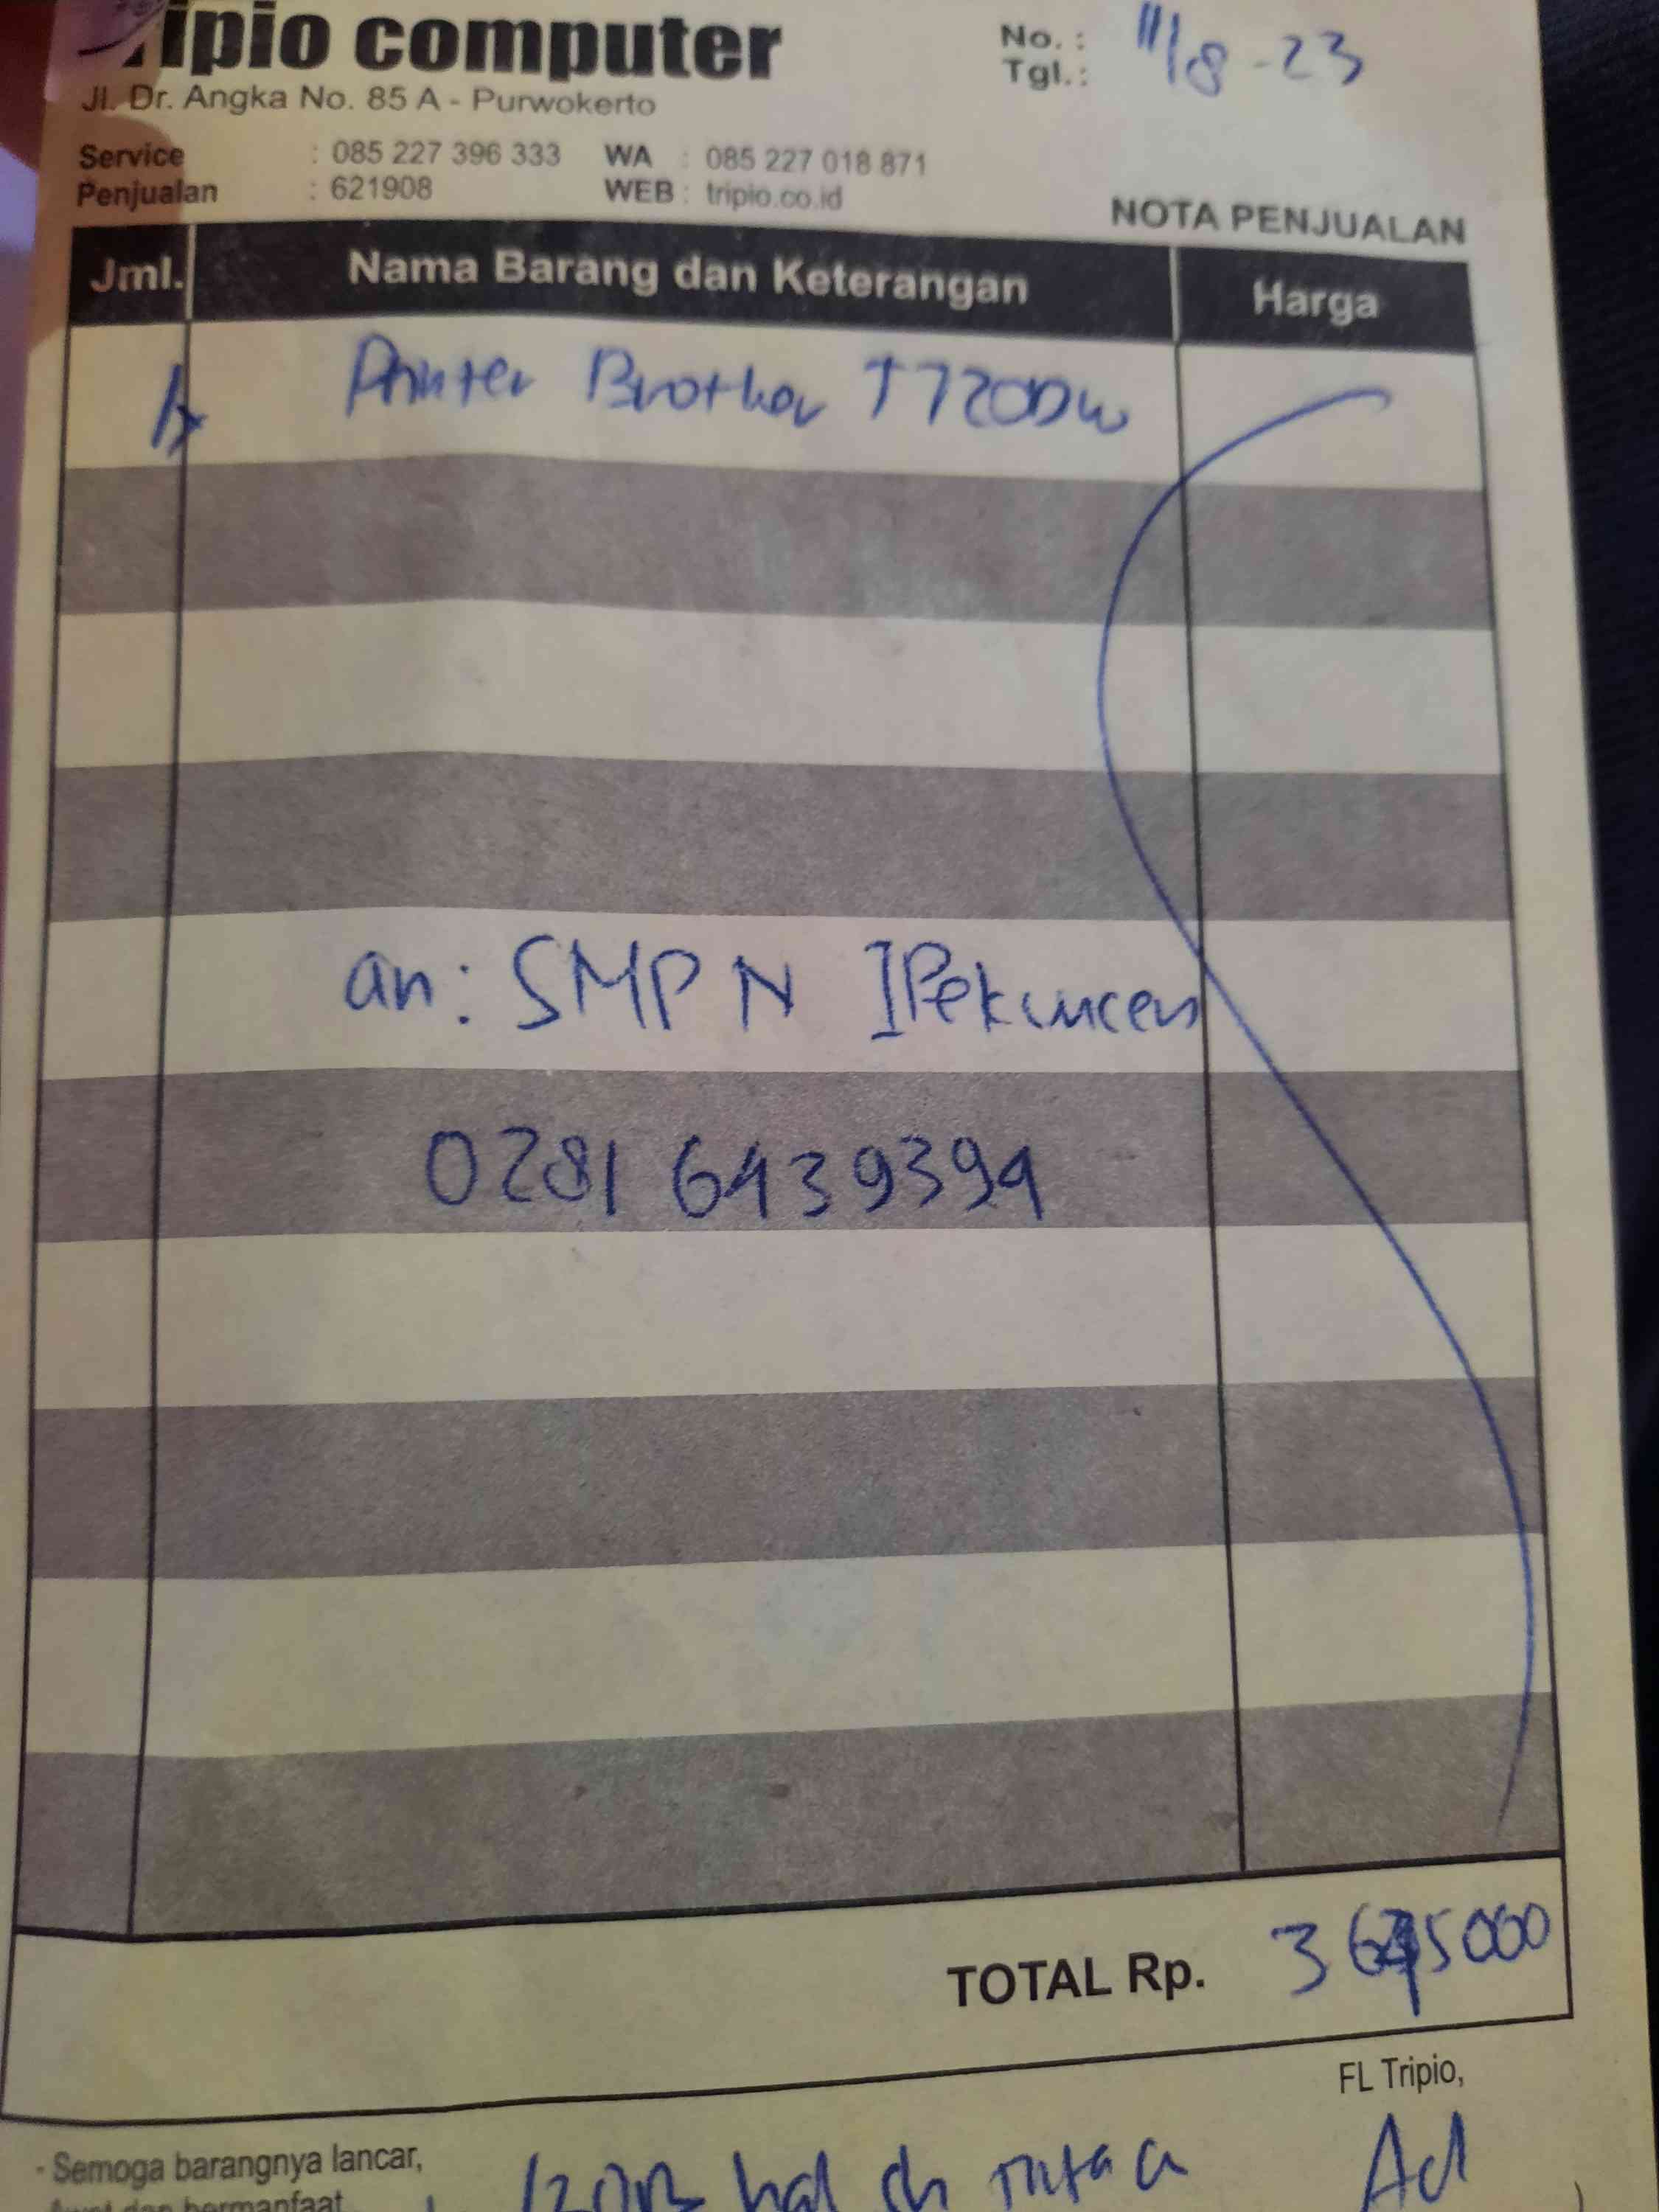 Tripio computer
No. :
Tgl. : 11/8-23
Jl. Dr. Angka No. 85 A - Purwokerto
Service : 085 227 396 333 WA : 085 227 018 871
Penjualan : 621908 WEB : tripio.co.id
NOTA PENJUALAN
Jml. Nama Barang dan Keterangan Harga
1x Printer Brother T720DW
an: SMP N 1 Pekuncen
0281 6439394
TOTAL Rp. 3 5000
FL Tripio,
- Semoga barangnya lancar,
Awet dan bermanfaat